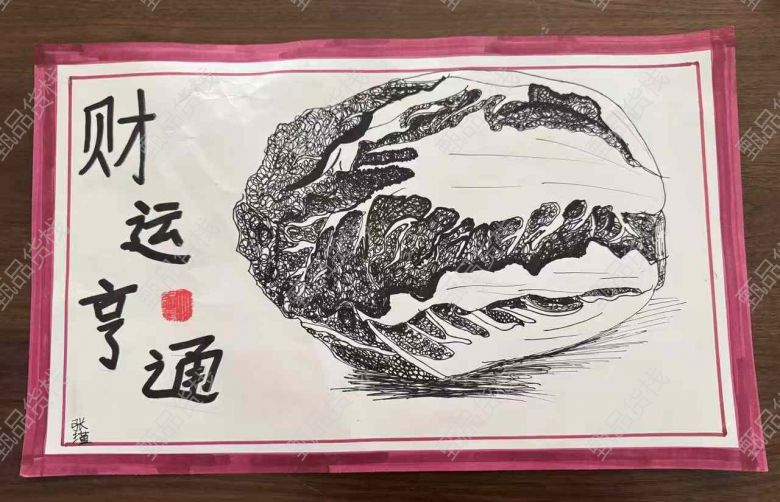 财运
亨通
张
甄品货栈